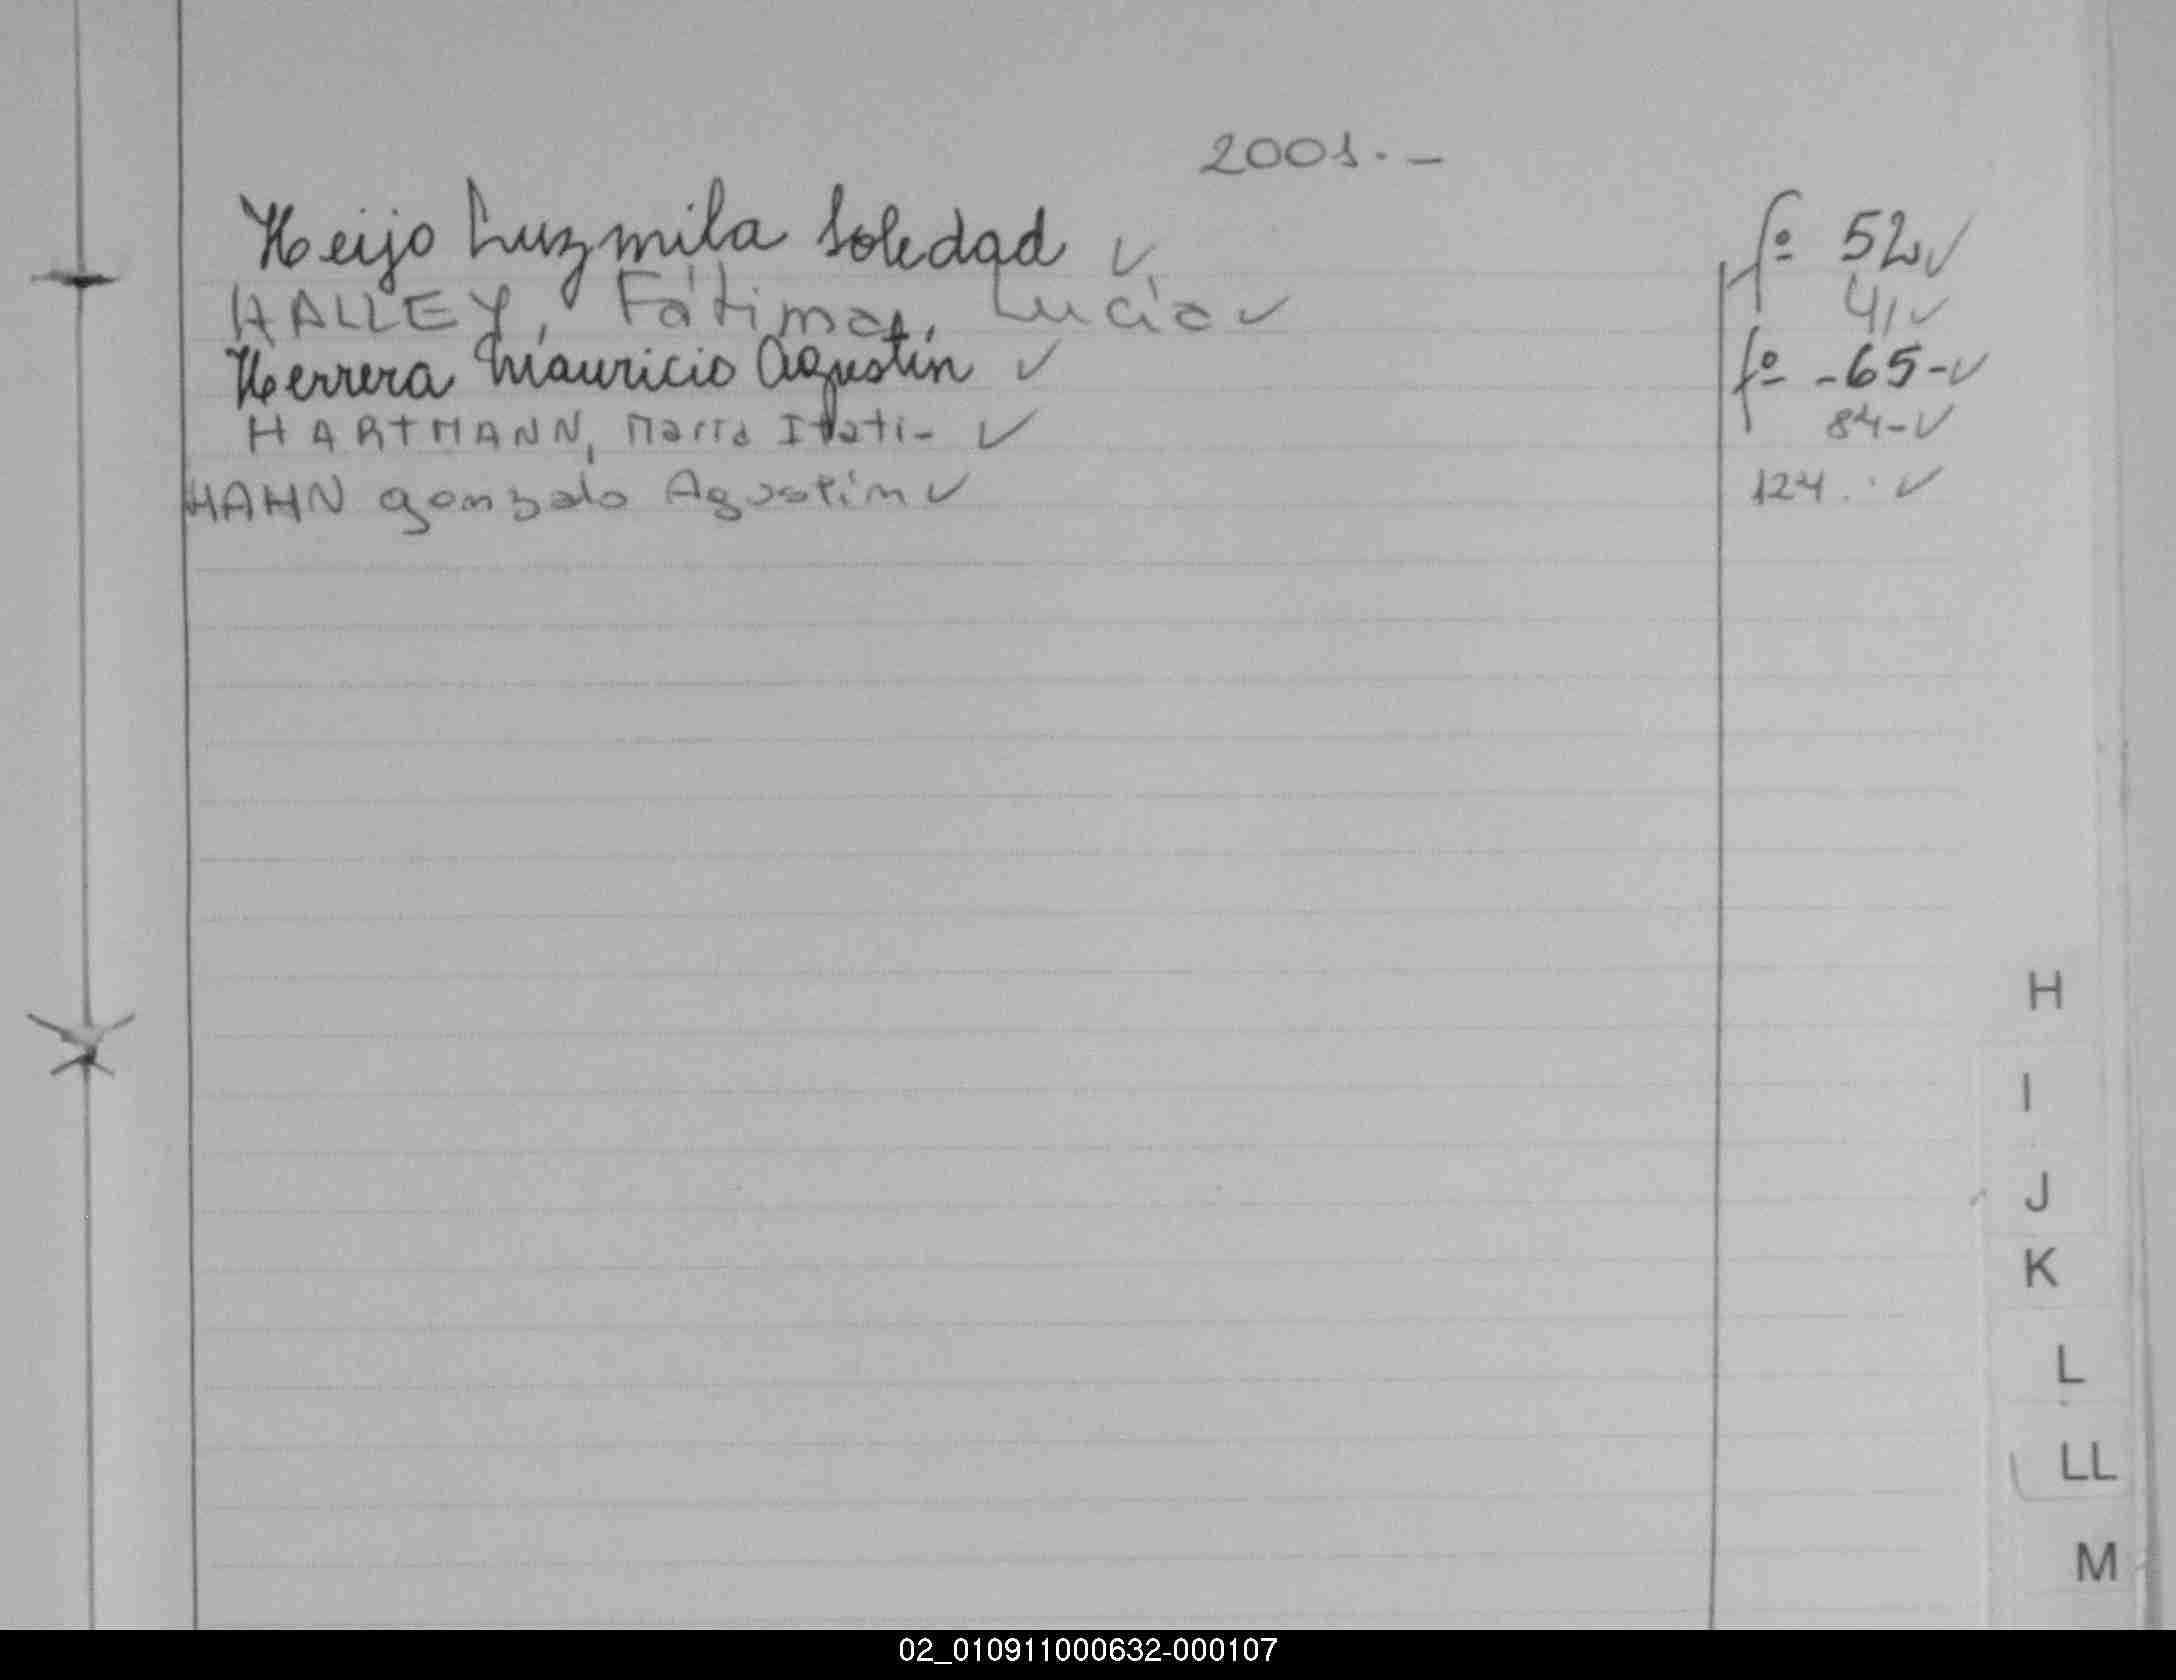 2001.-
Heijo Luzmila Soledad ✓ fº 52 ✓
HALLEY, Fátima, Lucía ✓ 41 ✓
Herrera Mauricio Agustín ✓ fº -65- ✓
HARTMANN, María Itati- ✓ 84- ✓
HAHN gonzalo Agustín ✓ 124. ✓
H
I
J
K
L
LL
M
02_010911000632-000107